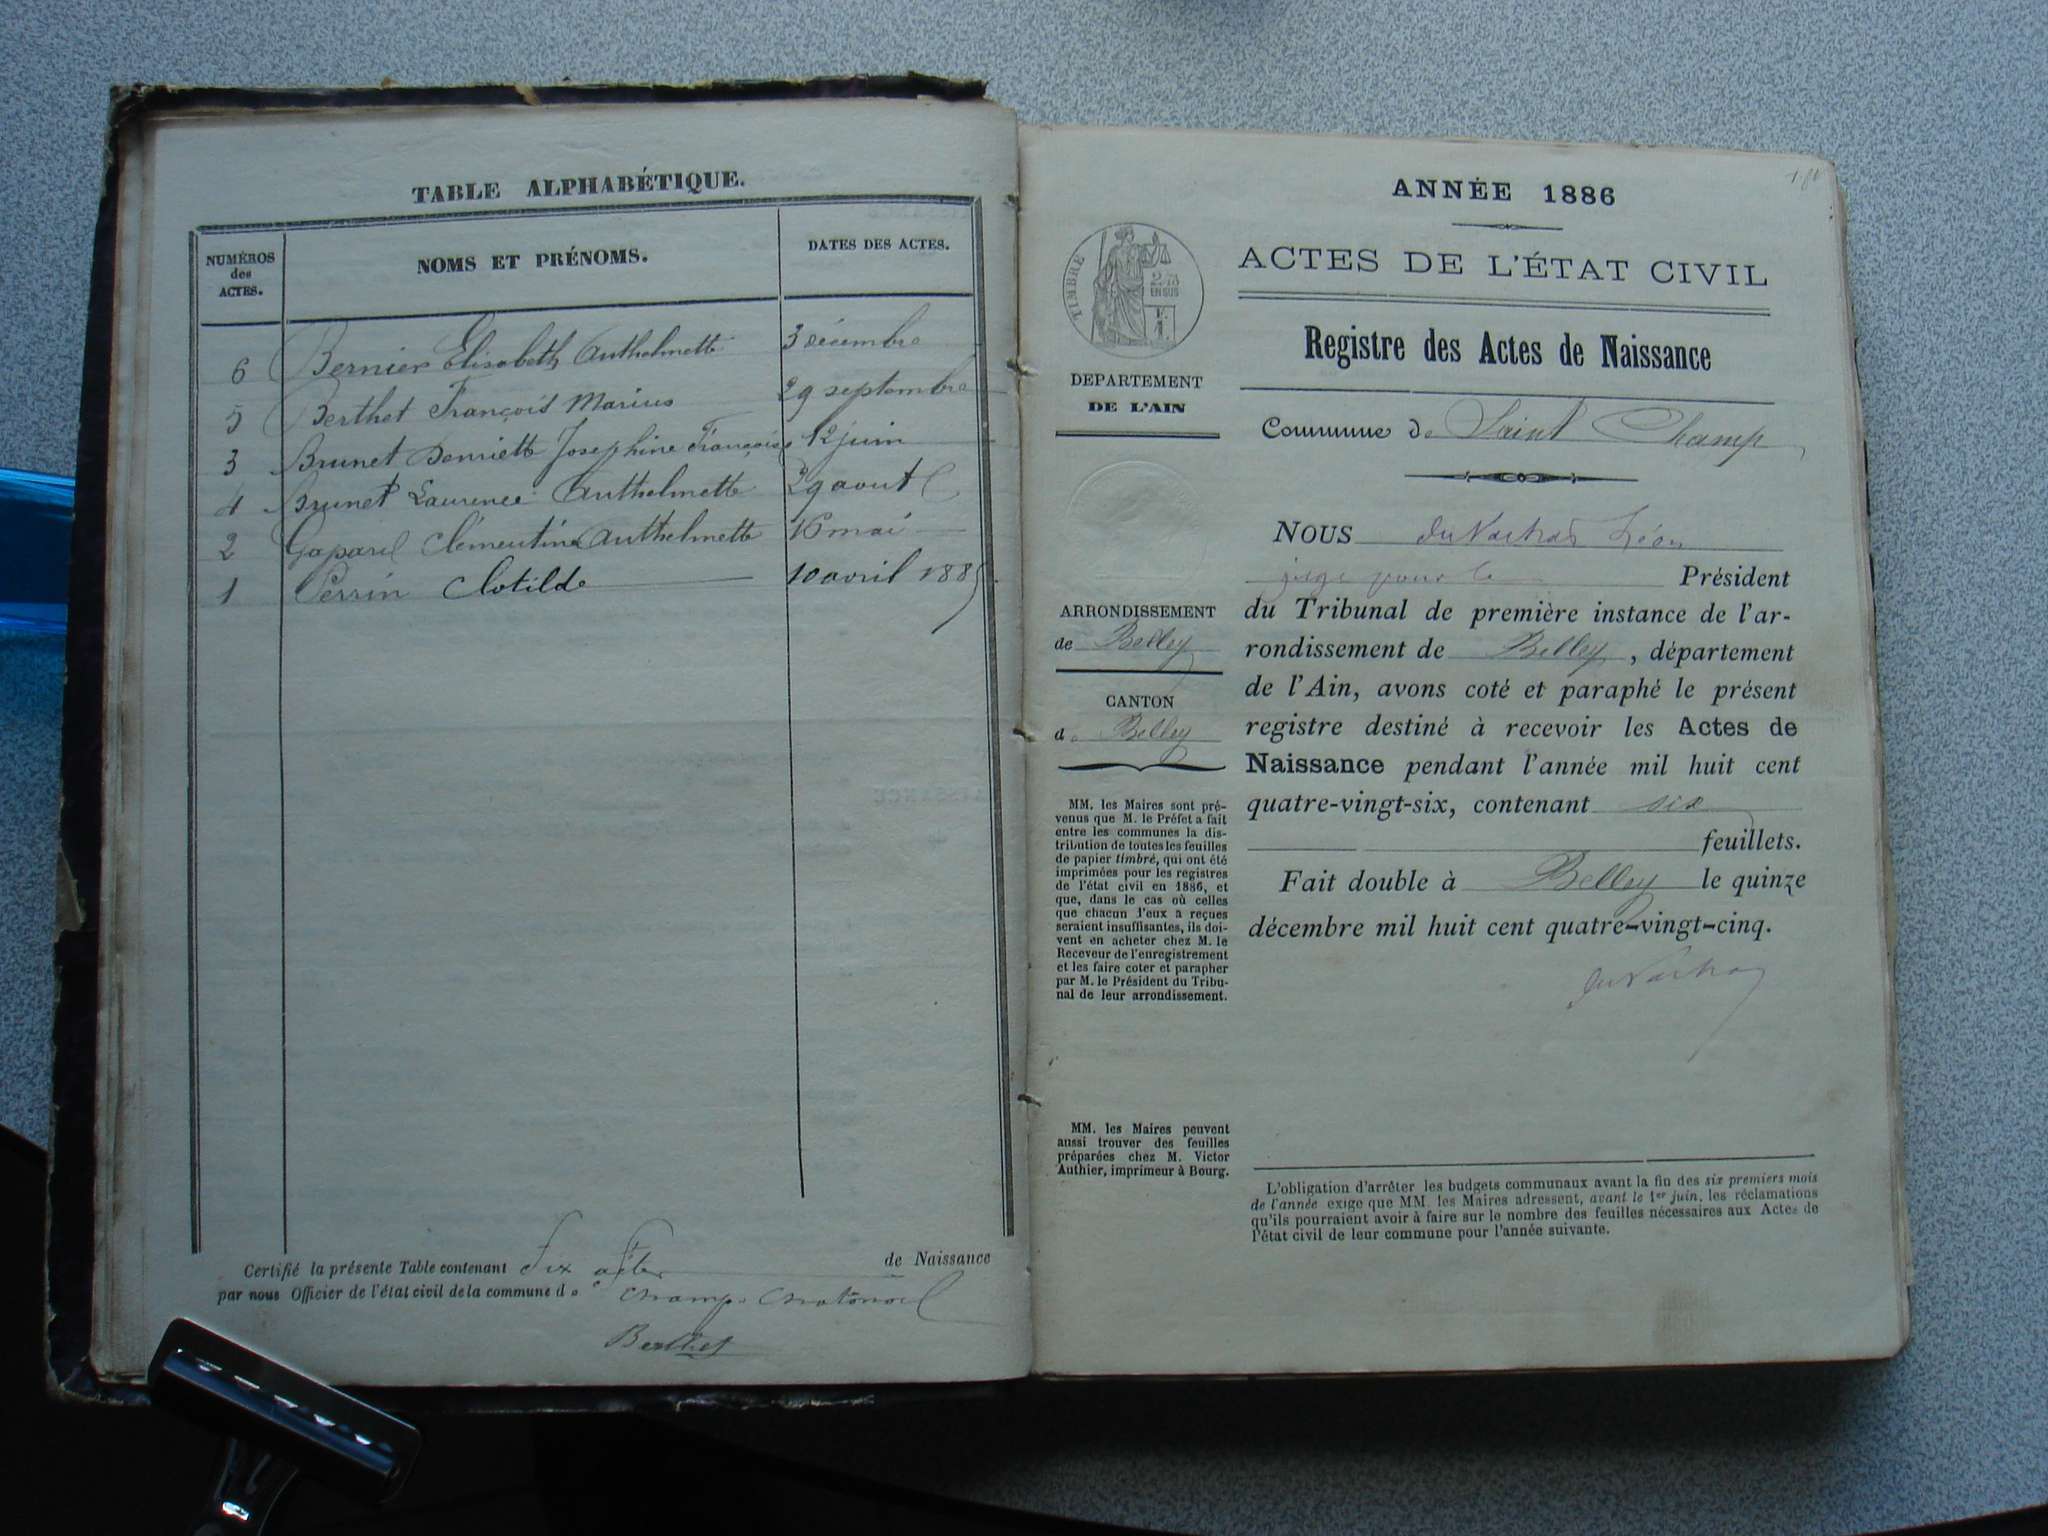 TABLE ALPHABÉTIQUE.
NUMÉROS
des
ACTES.
NOMS ET PRÉNOMS.
DATES DES ACTES.
6 Bernier Elisabeth Anthelmette 3 décembre
5 Berthet François Marius 29 septembre
3 Brunet Henriette Josephine Françoise 12 juin
4 Brunet Laurence Anthelmette 29 aout
2 Clémentine Anthelmette 16 mai
1 Perrin Clotilde 10 avril 1885
Certifié la présente Table contenant Six actes de Naissance
par nous Officier de l'état civil de la commune de Champ Chatonod
Berthet
ANNÉE 1886
ACTES DE L'ÉTAT CIVIL
TIMBRE
EN SUS
DEPARTEMENT
DE L'AIN
Registre des Actes de Naissance
Commune de Saint Champ
ARRONDISSEMENT
de Belley
CANTON
de Belley
MM. les Maires sont pré-
venus que M. le Préfet a fait
entre les communes la dis-
tribution de toutes les feuilles
de papier timbré, qui ont été
imprimées pour les registres
de l'état civil en 1886, et
que, dans le cas où celles
que chacun d'eux a reçues
seraient insuffisantes, ils doi-
vent en acheter chez M. le
Receveur de l'enregistrement
et les faire coter et parapher
par M. le Président du Tribu-
nal de leur arrondissement.
MM. les Maires peuvent
aussi trouver des feuilles
préparées chez M. Victor
Authier, imprimeur à Bourg.
NOUS Léon
juge pour le Président
du Tribunal de première instance de l'ar-
rondissement de Belley, département
de l'Ain, avons coté et paraphé le présent
registre destiné à recevoir les Actes de
Naissance pendant l'année mil huit cent
quatre-vingt-six, contenant six
feuillets.
Fait double à Belley le quinze
décembre mil huit cent quatre-vingt-cinq.
L'obligation d'arrêter les budgets communaux avant la fin des six premiers mois
de l'année exige que MM. les Maires adressent, avant le 1er juin, les réclamations
qu'ils pourraient avoir à faire sur le nombre des feuilles nécessaires aux Actes de
l'état civil de leur commune pour l'année suivante.